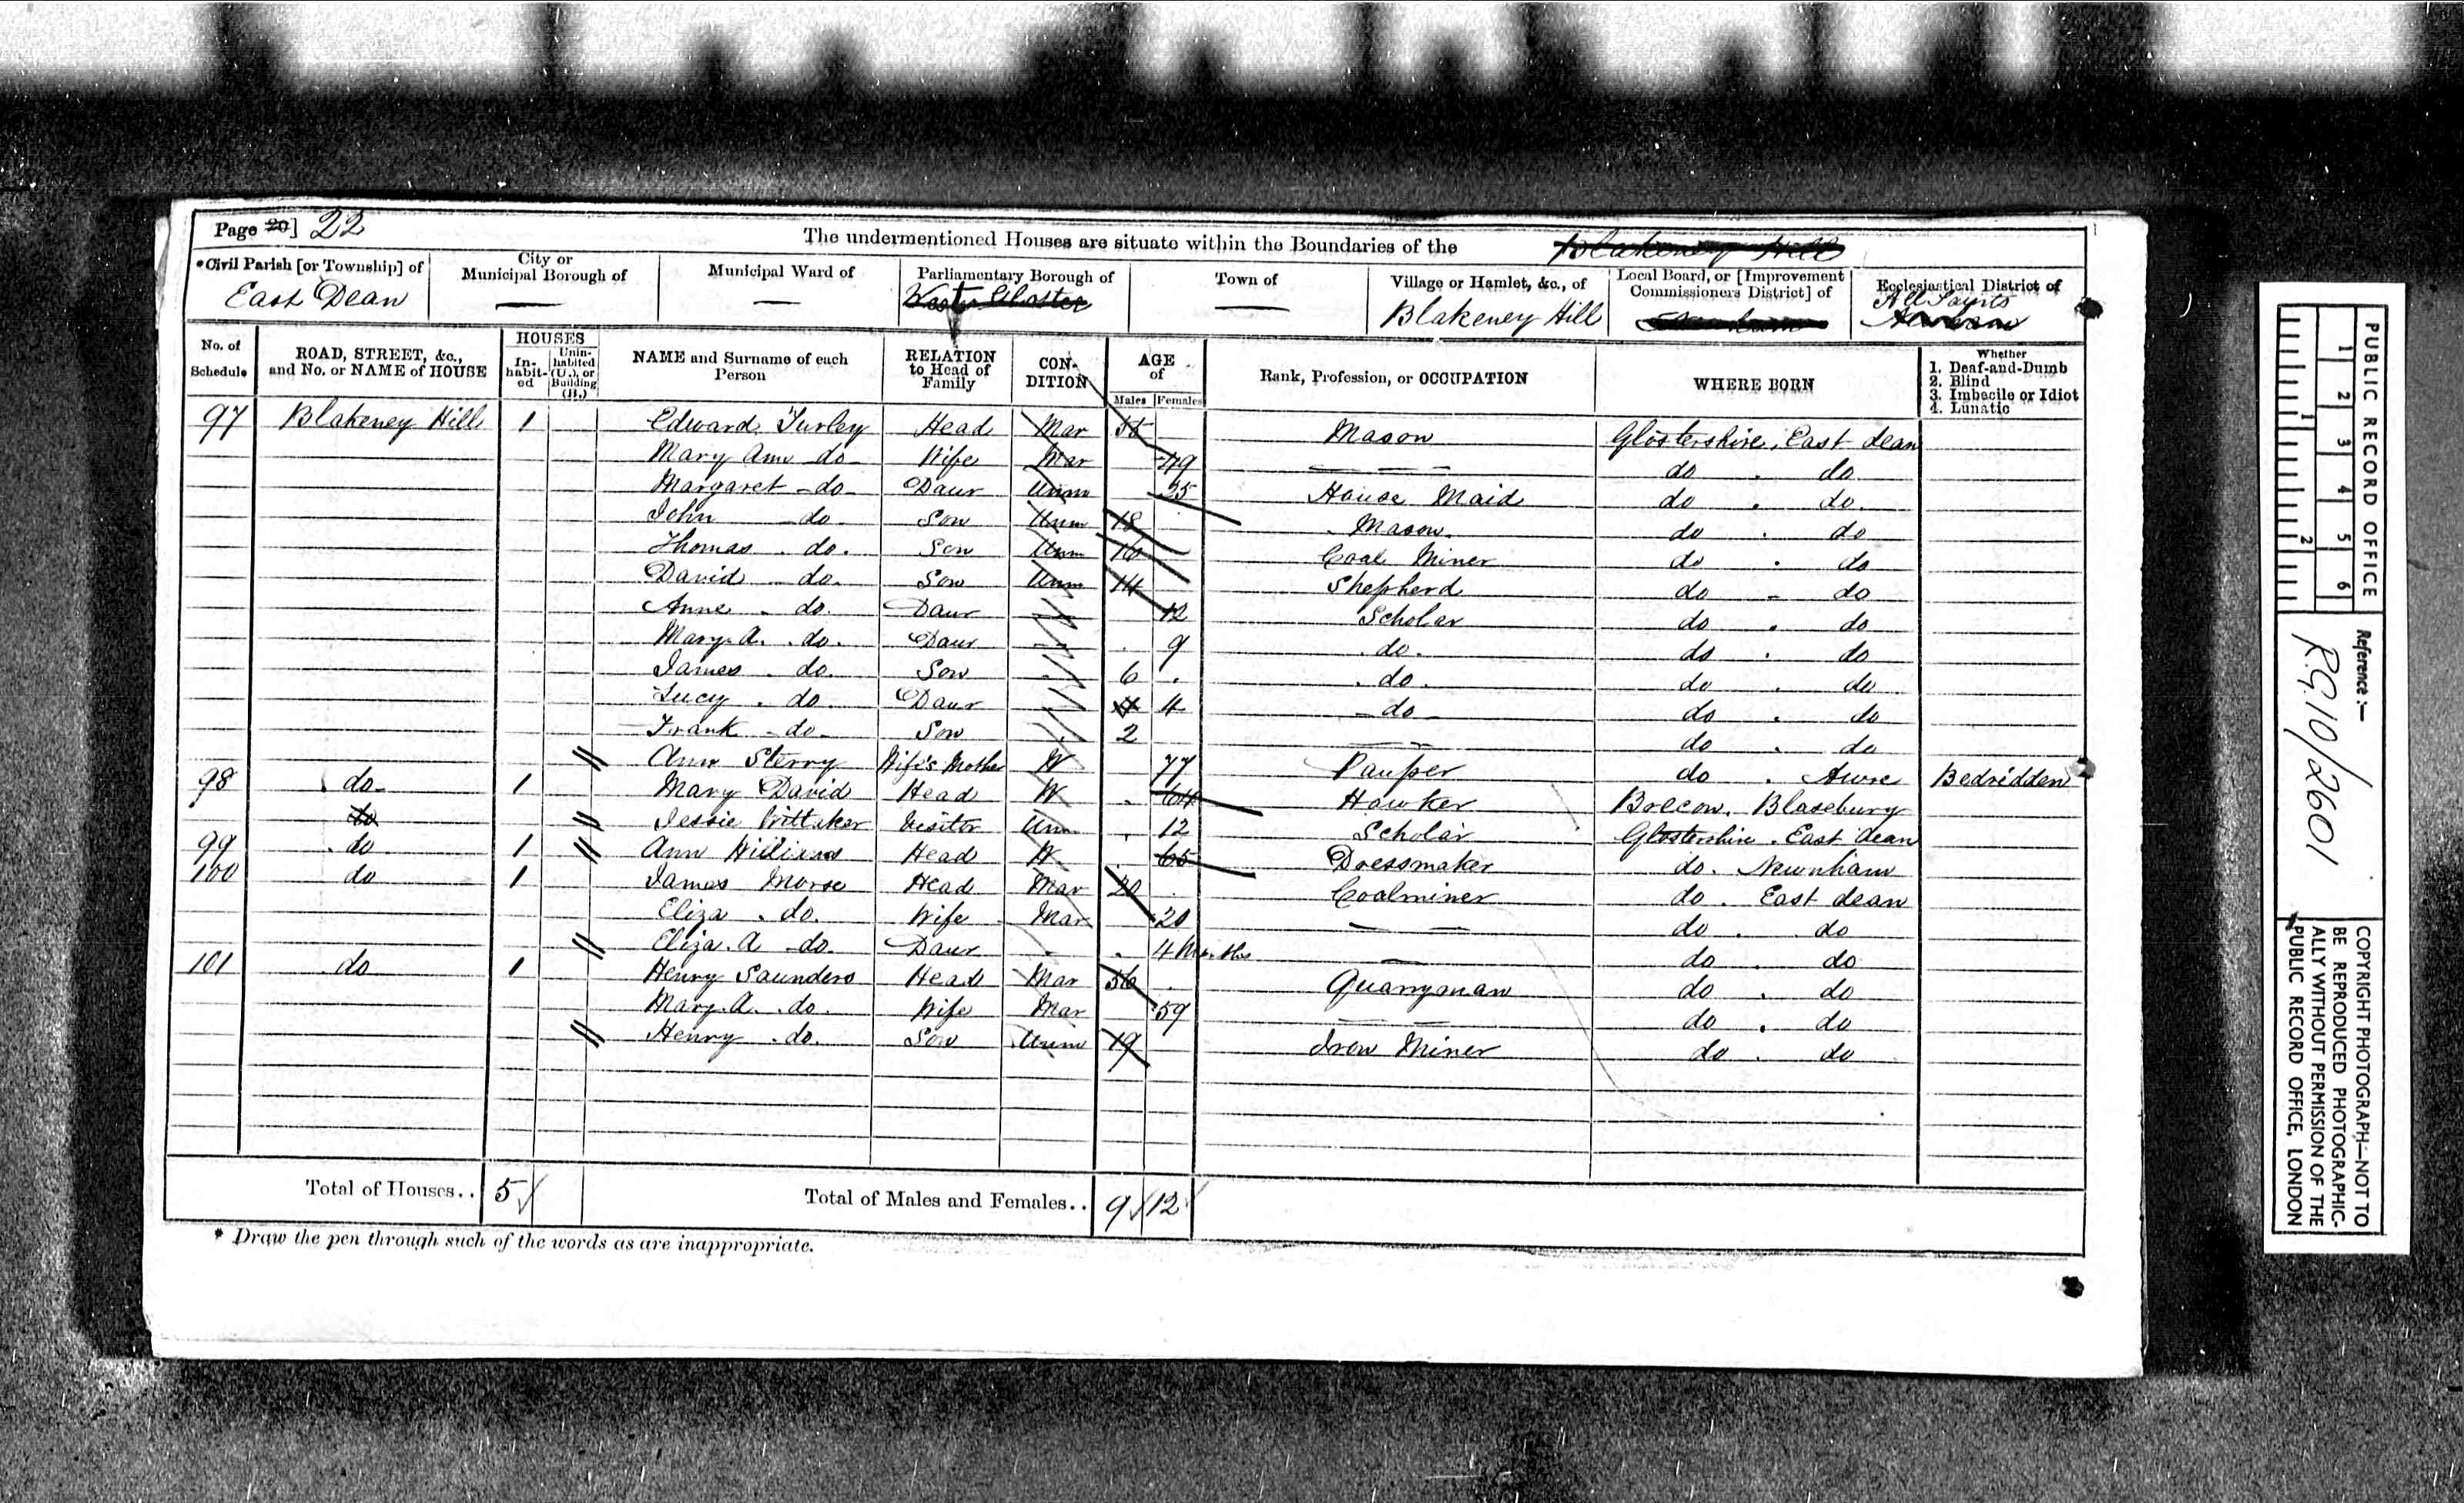 Page 20] 22
The undermentioned Houses are situate within the Boundaries of the Blakeney Hill
*Civil Parish [or Township] of East Dean
City or Municipal Borough of —
Municipal Ward of —
Parliamentary Borough of
Town of —
Village or Hamlet, &c., of Blakeney Hill
Local Board, or [Improvement Commissioners District] of
Ecclesiastical District of All Saints
No. of Schedule
ROAD, STREET, &c., and No. or NAME of HOUSE
HOUSES
In-habit-ed
Unin-habited (U.), or Building (B.)
NAME and Surname of each Person
RELATION to Head of Family
CON-DITION
AGE of
Males Females
Rank, Profession, or OCCUPATION
WHERE BORN
Whether
1. Deaf-and-Dumb
2. Blind
3. Imbecile or Idiot
4. Lunatic
97 Blakeney Hill 1 Edward Turley Head Mar Mason Glostershire, East dean
Mary Ann do Wife Mar 49 — — — do . do
Margaret do Daur Unm 25 House Maid do . do.
John do Son Unm 18 Mason. do . do
Thomas do. Son Unm 16 Coal Miner do . do
David do. Son Unm 14 Shepherd do - do
Anne do. Daur — 12 Scholar do . do
Mary A. do. Daur — 9 do. do . do
James do. Son 6 do. do . do
Lucy do. Daur 4 4 do do . do
Frank do Son 2 — — do . do
Ann Sterry Wife's Mother W 77 Pauper do . Awre Bedridden
98 do 1 Mary David Head W 64 Hawker Brecon. Blasebury
do Jessie Visitor Unm 12 Scholar Glostershire. East dean
99 do 1 Ann Williams Head W 65 Dressmaker do. Newnham
100 do 1 James Morse Head Mar 20 Coalminer do. East dean
Eliza do. Wife Mar 20 — — do . do
Eliza. A do. Daur 4 Months — do . do
101 do 1 Henry Saunders Head Mar 56 Quarryman do . do
Mary. A. do. Wife Mar 59 — — do . do
Henry do. Son Unm 19 Iron Miner do . do
Total of Houses.. 5
Total of Males and Females.. 9 12
* Draw the pen through such of the words as are inappropriate.
PUBLIC RECORD OFFICE
1 2 3 4 5 6
1 2
Reference :—
R.G. 10/2601
COPYRIGHT PHOTOGRAPH—NOT TO
BE REPRODUCED PHOTOGRAPHIC-
ALLY WITHOUT PERMISSION OF THE
PUBLIC RECORD OFFICE, LONDON